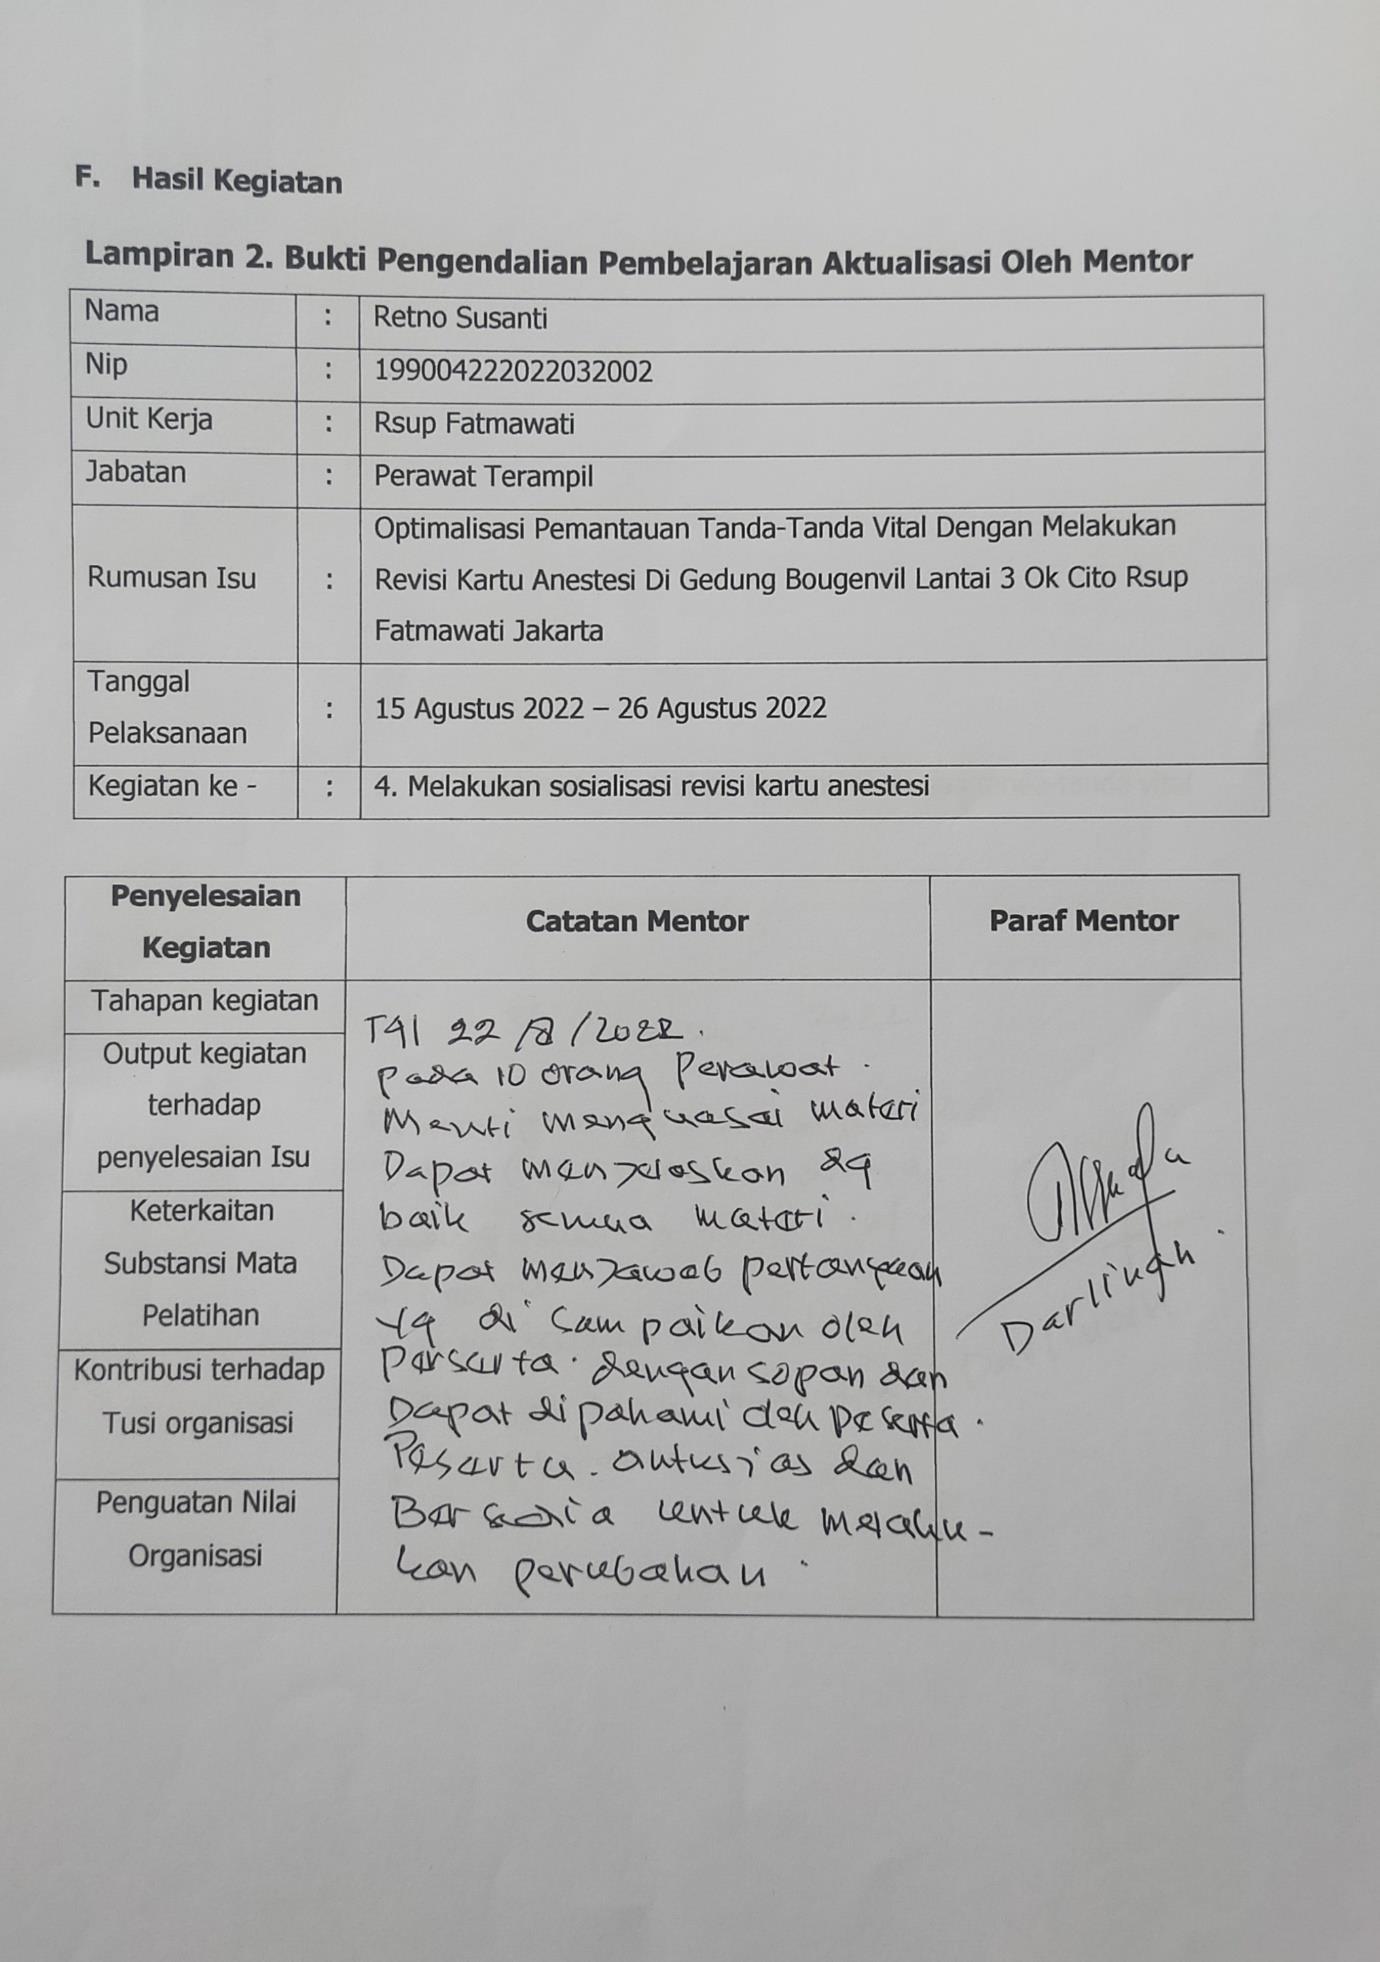 F. Hasil Kegiatan
Lampiran 2. Bukti Pengendalian Pembelajaran Aktualisasi Oleh Mentor
Nama : Retno Susanti
Nip : 199004222022032002
Unit Kerja : Rsup Fatmawati
Jabatan : Perawat Terampil
Rumusan Isu : Optimalisasi Pemantauan Tanda-Tanda Vital Dengan Melakukan
Revisi Kartu Anestesi Di Gedung Bougenvil Lantai 3 Ok Cito Rsup
Fatmawati Jakarta
Tanggal
Pelaksanaan : 15 Agustus 2022 – 26 Agustus 2022
Kegiatan ke - : 4. Melakukan sosialisasi revisi kartu anestesi
Penyelesaian
Kegiatan
Catatan Mentor
Paraf Mentor
Tahapan kegiatan
Output kegiatan
terhadap
penyelesaian Isu
Keterkaitan
Substansi Mata
Pelatihan
Kontribusi terhadap
Tusi organisasi
Penguatan Nilai
Organisasi
Tgl 22/8/2022.
pada 10 orang Perawat.
Menti menguasai materi
Dapat menjelaskan dg
baik semua materi.
Dapat menjawab pertanyaan
yg di sampaikan oleh
Perserta. dengan sopan dan
Dapat di pahami oleh peserta.
Peserta. antusias dan
Bersedia untuk melaku-
kan perubahan.
Darlingh